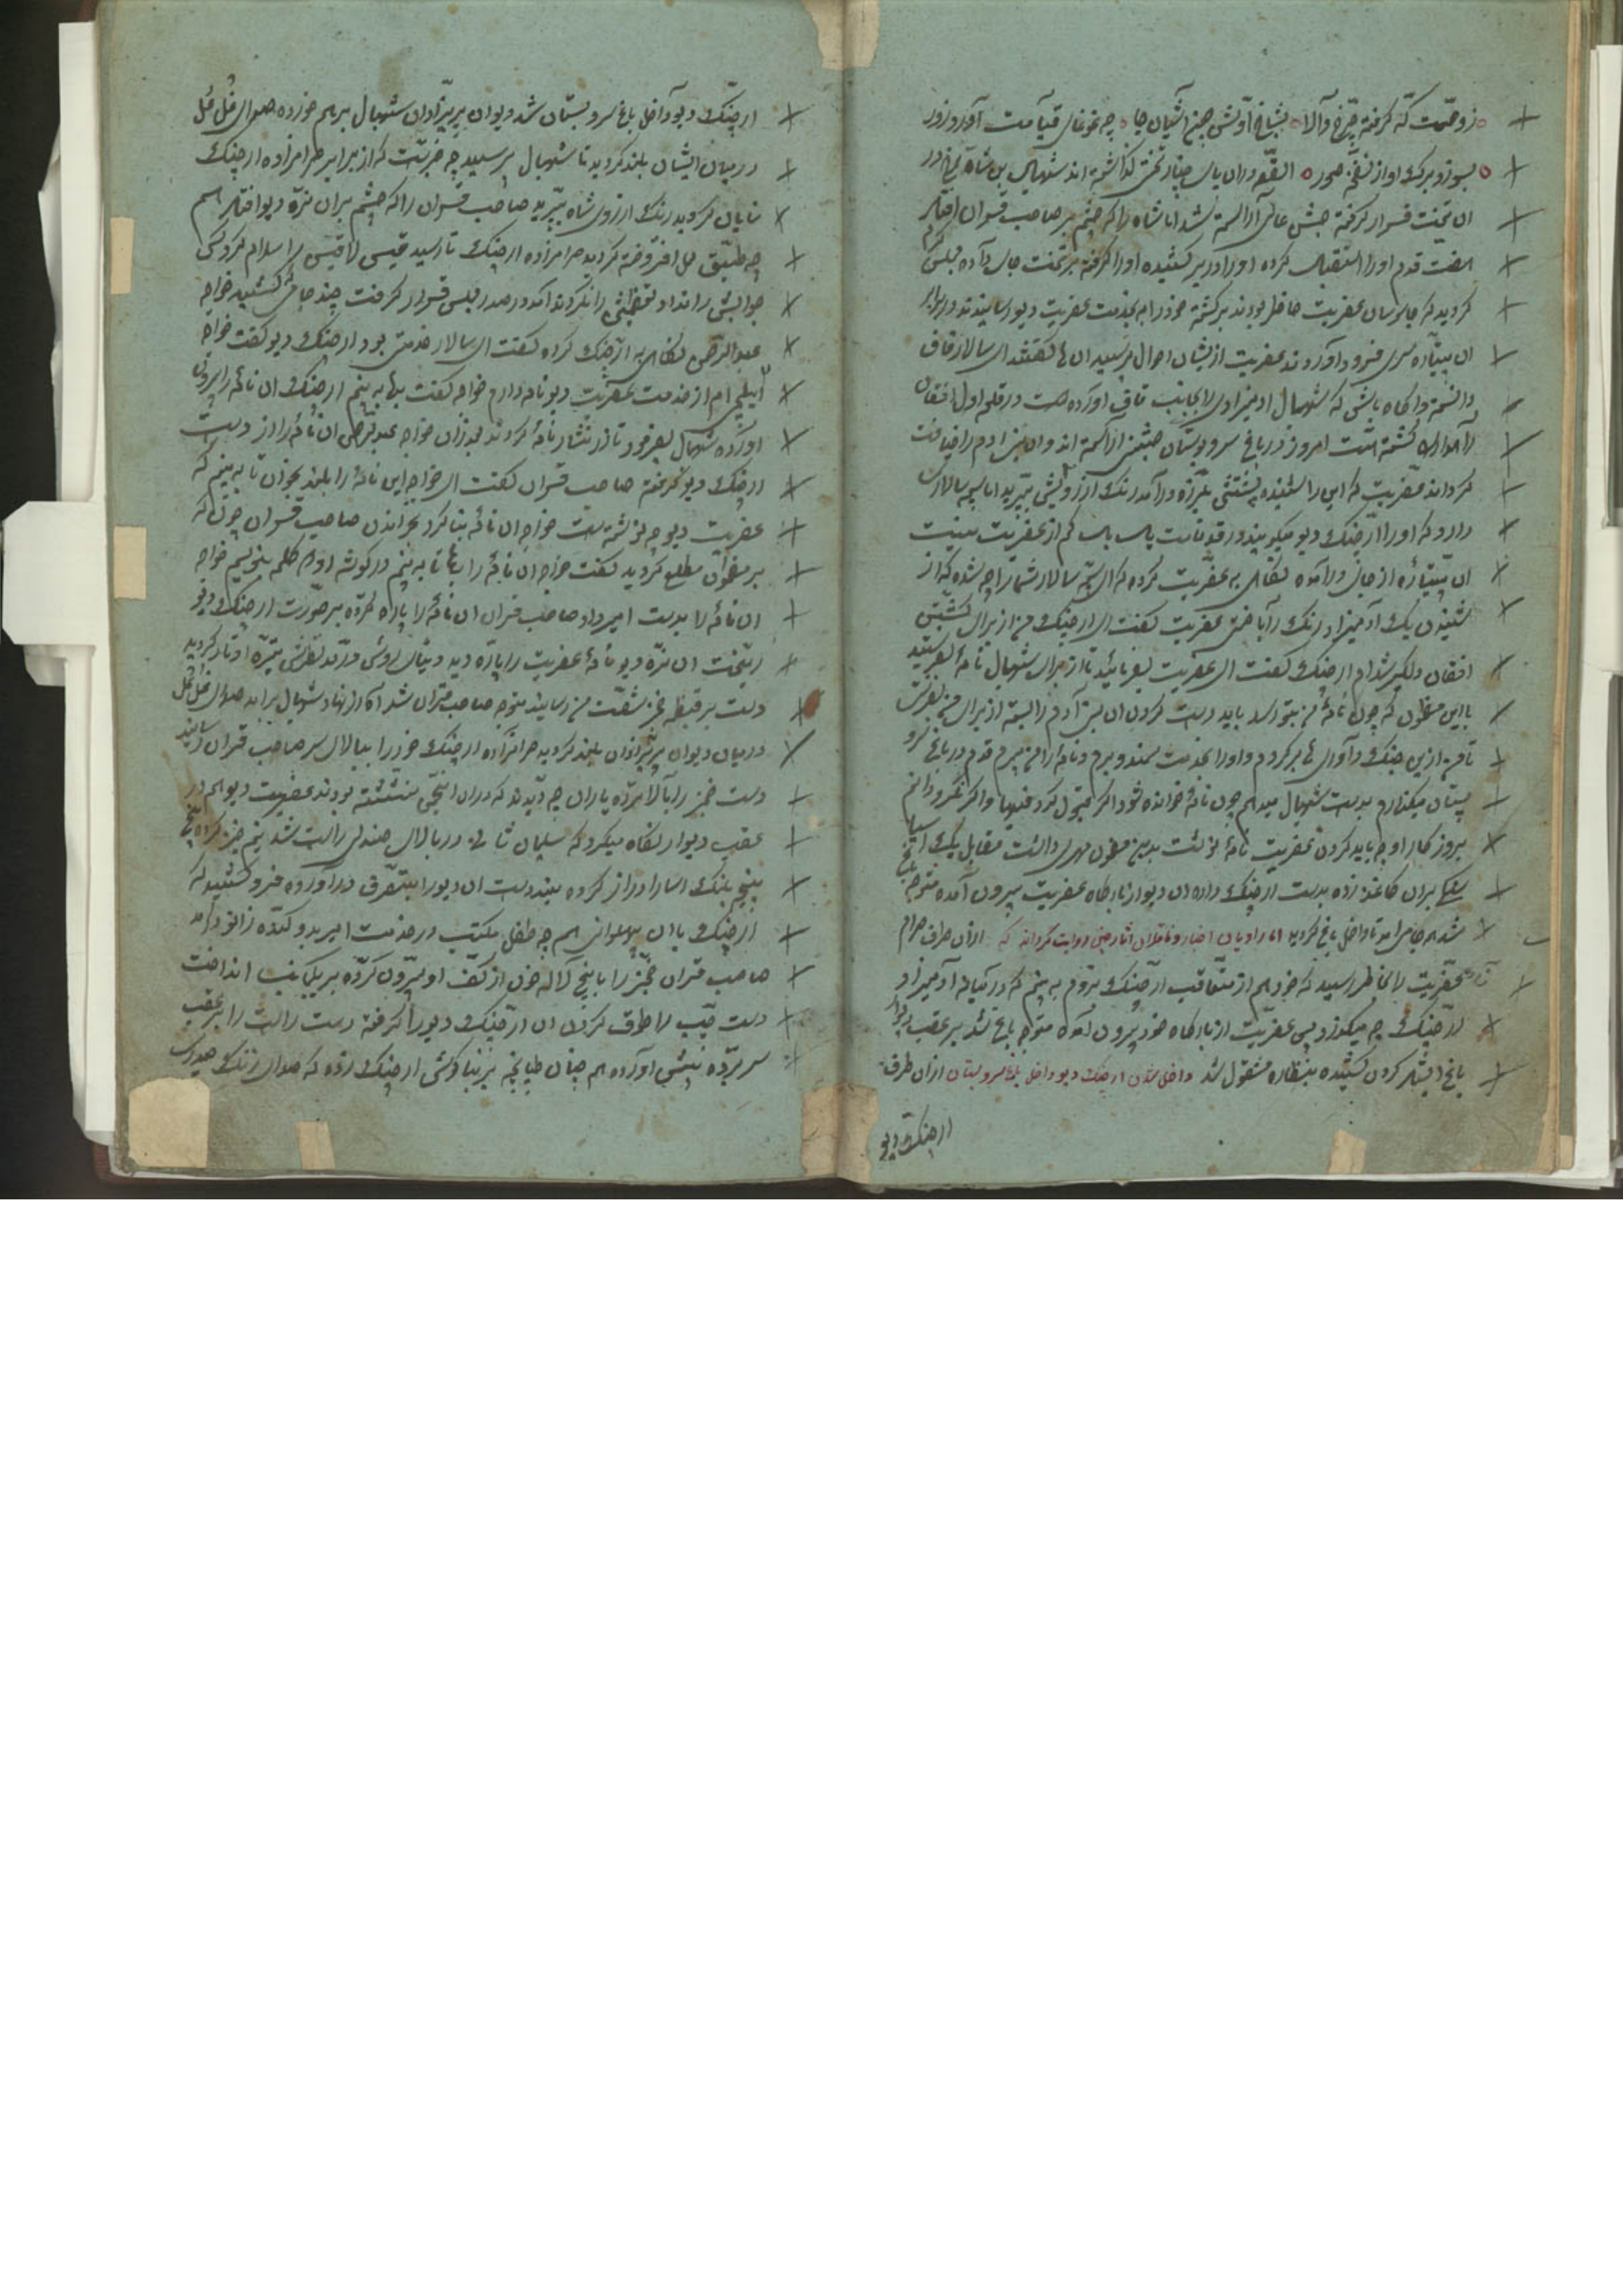 زو حمت که کرفته چرخ والا بشاخ اونش جن آشیان جا چه غوغای قیامت آورد زور
بسوزد برک اواز نفخه صور القصه دران پای چنار تختی کذاشته اند شهپال بن شاه رخ در
ان تخت قرار کرفته جشن عالی آراسته شد اما شاه را که چشم بر صاحب قران افتاد
هفت قدم اورا استقبال کرده اورا در بر کشیده اورا کرفته بر تخت جای داده مجلس کرم
کردید که جاسوسان عفریت حاضر بودند برکشته خود را بخدمت عفریت دیو رسانیدند در برابر
ان پتیاره سری فرود آوردند عفریت از ایشان احوال پرسید ان ها کفتند ای سالار قاف
دانسته و اکاه باش که شهپال ادمیزادی را بجانب قاف آورده است در قلعه اول افغان
را کشته است امروز در باغ سروبستان جشنی آراسته اند و ان بنی ادم را ضیافت
کرداند عفریت که این را شنید پشتش بلرزه در آمد رنک از رویش پرید اما سپه سالاری
دارد که او را ارچنک دیو میکویند در قد و قامت پای کم از عفریت نیست
ان پتیاره از جای در آمده نکاهی به عفریت کرده که ای سالار شما را چه شده که از
شنیدن یک آدمیزاد رنک را باختی عفریت کفت ای ارچنک من از برای کشتن
افغان دلکیر شده ام ارچنک کفت ای عفریت بفرمائید تا از برای شهپال نامه بنویسند
با این مضمون که چون نامه من بتو رسد باید دست کردن ان بنی آدم را بسته از برای من بفرست
تا من ازین جنک و آوای ها برکردم و اورا بخدمت سمندو برم و نامه را من میبرم قدم در باغ سرو
بستان میکذارم بدست شهپال میدهم چون نامه خوانده شود اکر قبول کرد فبها و اکر نکرد دانم
بروزکار او چه باید کردن عفریت نامه نوشت بدین مضمون مهری داشت مقابل یک اسیا
سنک بران کاغذ زده بدست ارچنک داده ان دیو از بارکاه عفریت بیرون آمده متوجه باغ
شد می امد تا داخل باغ کردید اما راویان اخبار و ناقلان اثار چنین روایت کردانه که ازان طرف حرام
زاده عفریت را بخاطر رسید که خود هم از متعاقب ارچنک بروم به بینم که در میانه آدمیزاد
ارچنک چه میکذرد پس عفریت از بارکاه خود بیرون آمده متوجه باغ شد بر عقب دیوار
باغ کردن کشیده بنظاره مشغول شد داخل شدن ارچنک دیو داخل باغ سروبستان ازان طرف
ارچنک دیو
ارچنک دیو داخل باغ سروبستان شد دیوان پریزادان شهپال برهم خورده صدای غل غل
در میان ایشان بلند کردید تا شهپال پرسید چه خبرست که از برابر حرامزاده ارچنک
نمایان کردید رنک از روی شاه پرید صاحب قران را که چشم بران نره دیو افتاد هم
چه طبق لعل افروخته کردید حرامزاده ارچنک تا رسید قیسی را قیسی را سلام کرد کسی
جوابش را نداد تعظیمش را نکردند آمد در صدر مجلس قرار کرفت چند جامی کشید خواجه
عبدالرحمن نکاهی به ارچنک کرده کفت ای سالار خدمتی بود ارچنک دیو کفت خواجه
ایلچی ام از خدمت عفریت دیو نامه دارم خواجه کفت بده به بینم ارچنک ان نامه را بیرون
اورده شهپال بفرمود تا زر نثار نامه کردند بعد زان خواجه عبدالرحمن ان نامه را از دست
ارچنک دیو کرفته صاحب قران کفت ای خواجه این نامه را بلند بخوان تا به بینم که
عفریت دیو چه نوشته است خواجه ان نامه بنا کرد بخواندن صاحب قران چون که
بر مضمون مطلع کردید کفت خواجه ان نامه را بده تا به بینم در کوشه او دو کلمه بنویسم خواجه
ان نامه را بدست امیر داد صاحب قران ان نامه را پاره کرده بر صورت ارچنک دیو
ریخت ان نره دیو نامه عفریت را پاره دید دنیای روشن در مد نظرش تیره و تار کردید
دست بر قبضه متوجه صاحب قران شد اه از نهاد شهپال بر امد صدای غل غل
در میان دیوان پریزادان بلند کردید حرامزاده ارچنک خود را ببالای سر صاحب قران رسانید
دست خنجر را بالا برده یاران چه دیدند که دران انجمن ننشسته بودند عفریت دیو هم در
عقب دیوار نکاه میکرد که سلیمان ثانی در بالای صندلی راست شد نیم خیز کرده پنج
پنج پلنک اسا را دراز کرده بند دست ان دیو را بتصرف در آورده فرو کشید که
ارچنک با ان پهلوانی هم چه طفل مکتب در خدمت امیر بدو کنده زانو در آمد
صاحب قران خنجر را با پنج لاله خون از کف او بیرون کرده بر یکجانب انداخت
دست چپ را طوق کردن ان ارچنک دیو را کرفته دست راست را بر عقب
سر برده پیش آورده هم چنان طپانچه بر بنا کوش ارچنک زده که صدای زنک صدوری